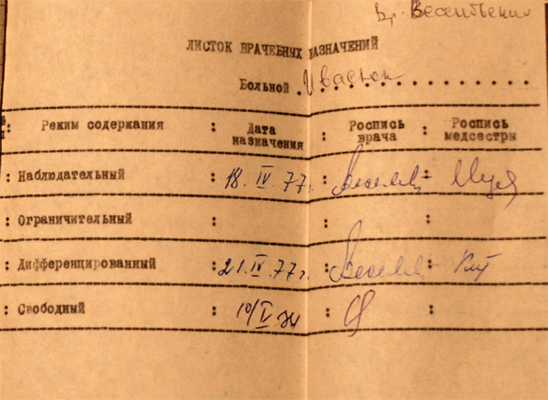 Вр. Веселовский
ЛИСТОК ВРАЧЕБНЫХ НАЗНАЧЕНИЙ
Больной . Ивасюк . . . . . . . . . .
: Режим содержания : Дата назначения : Роспись врача : Роспись медсестры
: Наблюдательный : 18. IV. 77г. :
: Ограничительный : : :
: Дифференцированный : 21. IV. 77г. :
: Свободный : 10/V 77 :